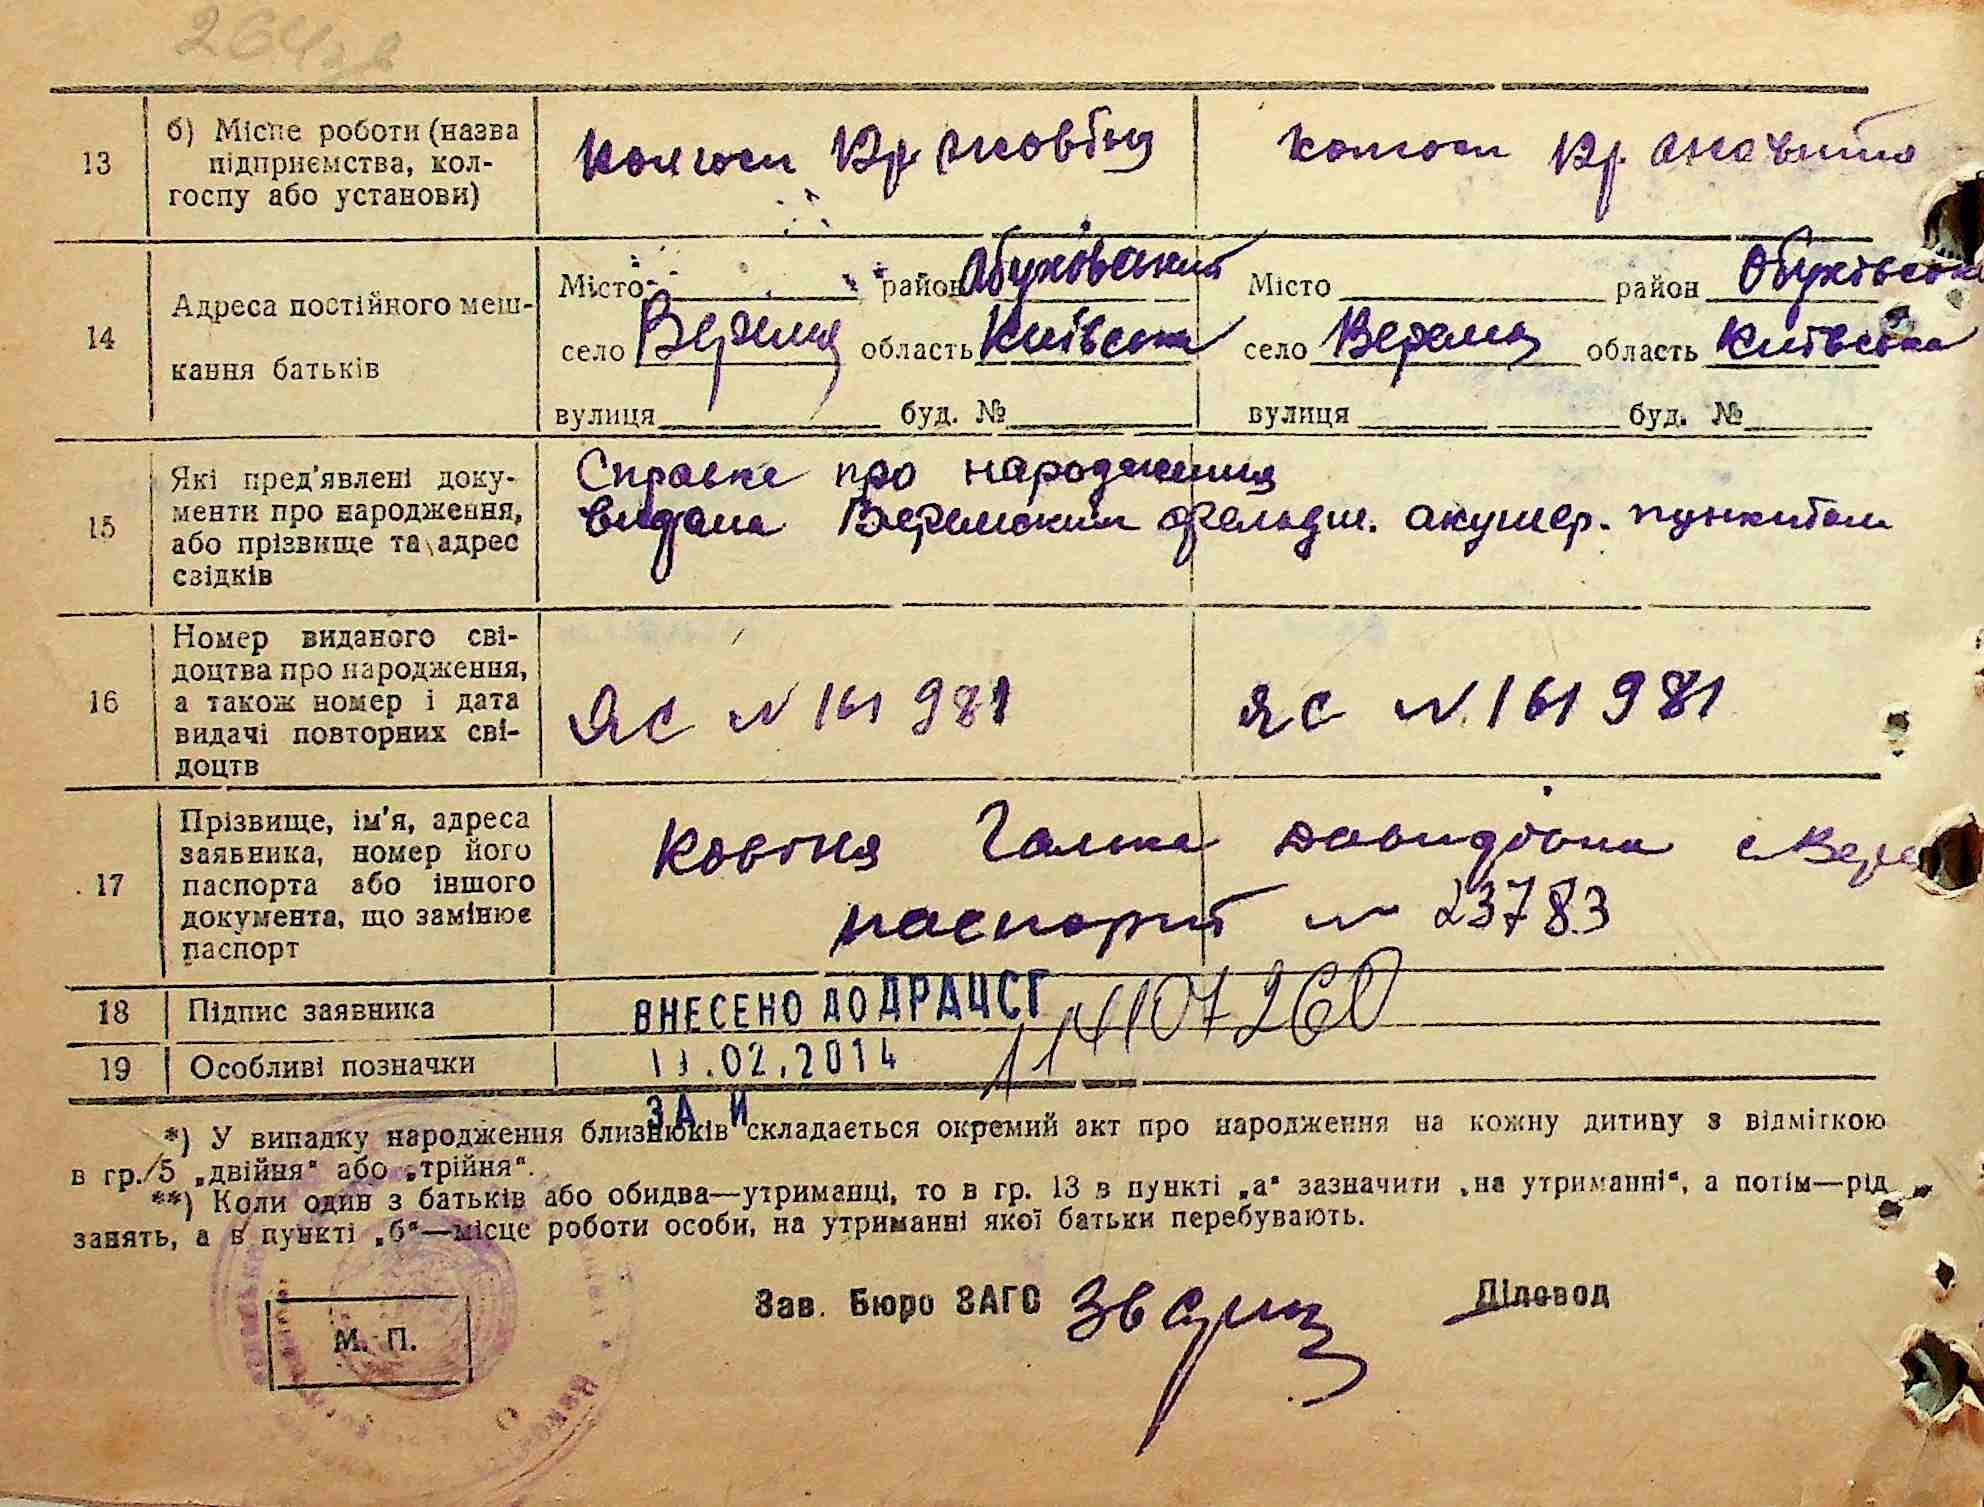 264зв
13
б) Місце роботи (назва
підприємства, кол-
госпу або установи)
Колгосп Кр.
колгосп Кр.
14
Адреса постійного меш-
кання батьків
Місто район Обуховский
село Веремя область Київська
вулиця буд. №
Місто район Обухівськ
село Веремя область Київська
вулиця буд. №
15
Які пред'явлені доку-
менти про народження,
або прізвище та адрес
свідків
Справка про народження
видана Веремским фельдш. акушер. пунктом
16
Номер виданого сві-
доцтва про народження,
а також номер і дата
видачі повторних сві-
доцтв
ЯС № 161981
ЯС № 161981
17
Прізвище, ім'я, адреса
заявника, номер його
паспорта або іншого
документа, що замінює
паспорт
Ковтня Галина Давидовна с. Вере
паспорт № 23783
18
Підпис заявника
ВНЕСЕНО ДО ДРАЦСГ
19
Особливі позначки
.02.2014
ЗА
*) У випадку народження близнюків складається окремий акт про народження на кожну дитину з відміткою
в гр. 5 „двійня“ або „трійня“.
**) Коли один з батьків або обидва—утриманці, то в гр. 13 в пункті „а“ зазначити „на утриманні“, а потім—рід
занять, а в пункті „б“—місце роботи особи, на утриманні якої батьки перебувають.
М. П.
Зав. Бюро ЗАГС
Діловод